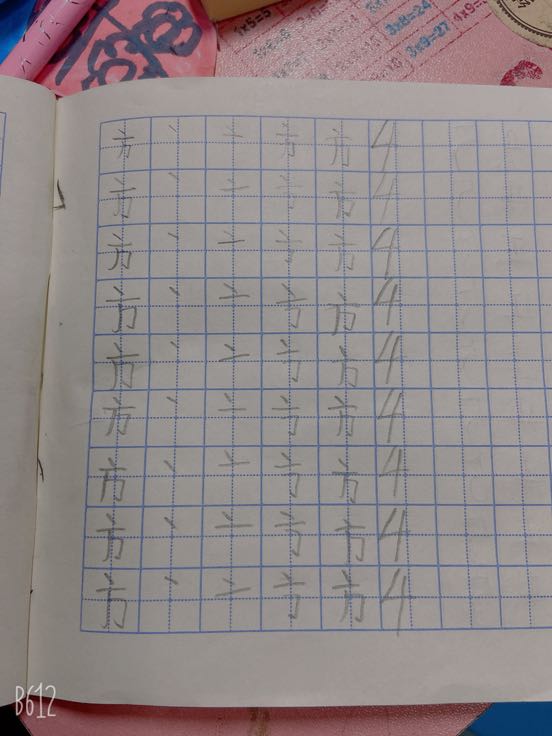 1×5=5 3×8=24 1×9=
3×9=27
方 丶 亠 方 4
方 丶 亠 方 4
方 丶 亠 方 4
方 丶 亠 方 4
方 丶 亠 方 4
方 丶 亠 方 4
方 丶 亠 方 4
方 丶 亠 方 4
方 丶 亠 方 4
B612